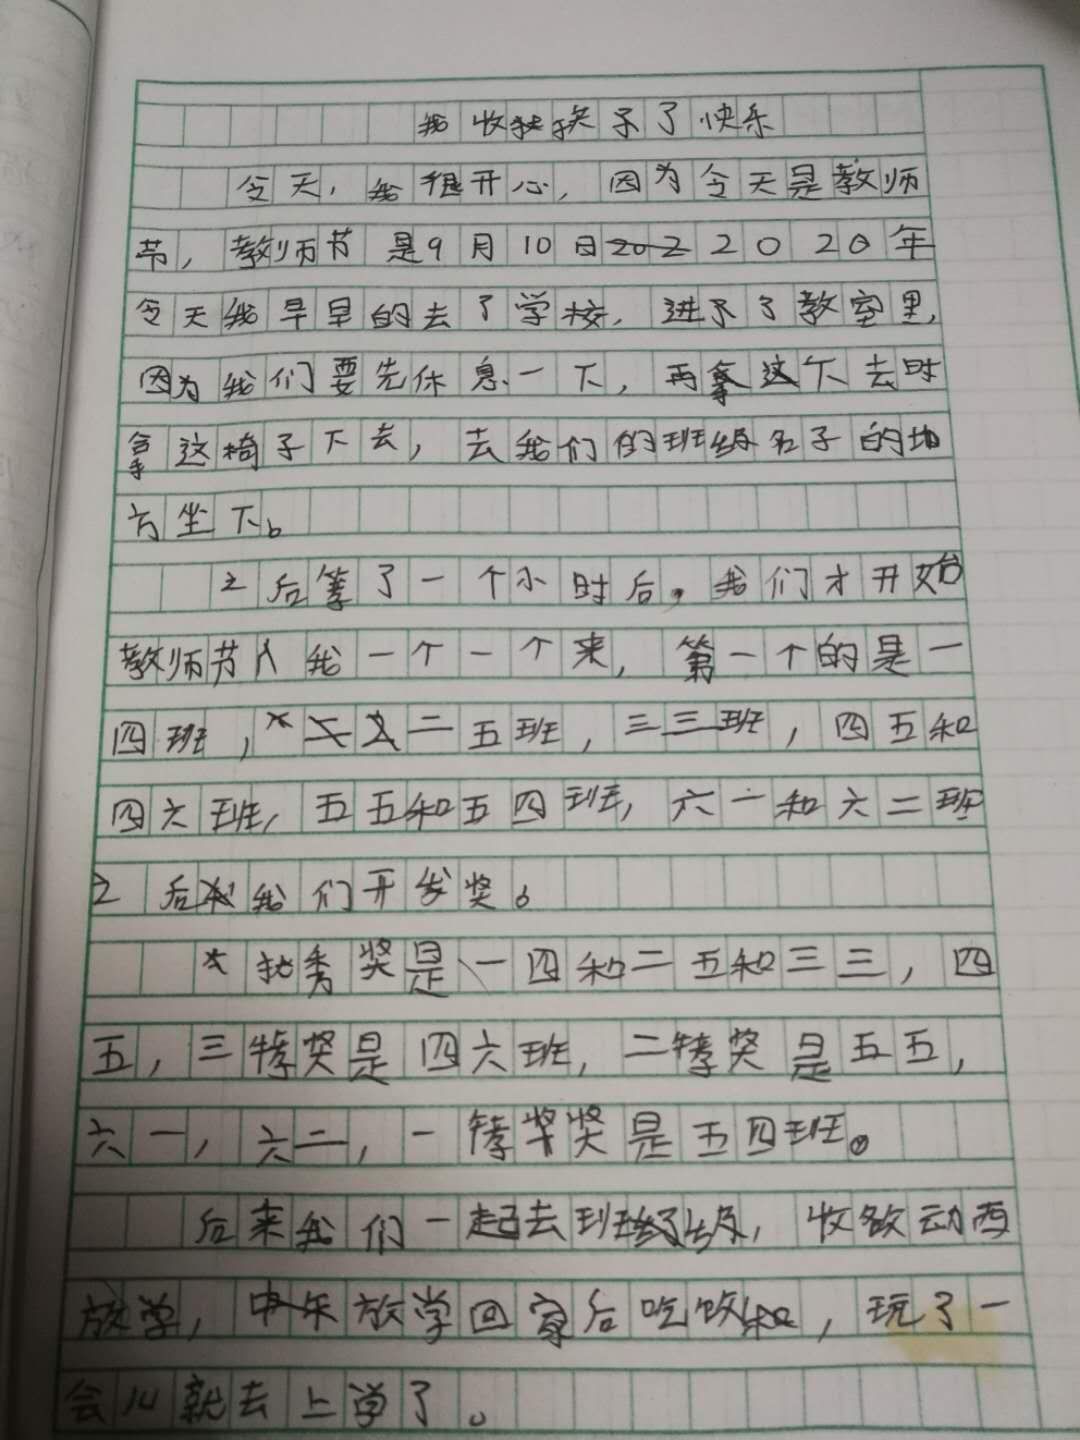 我收获了快乐
今天，我很开心，因为今天是教师
节，教师节是9月10日2020年
今天我早早的去了学校，进了教室里，
因为我们要先休息一下，再下去时
拿这椅子下去，去我们的班级名子的地
方坐下。
之后等了一个小时后，我们才开始
教师节人我一个一个来，第一个的是一
四班，二五班，三三班，四五和
四六班，五五和五四班，六一和六二班
之后我们开发奖。
秀奖是一四和二五和三三，四
五，三等奖是四六班，二等奖是五五，
六一，六二，一等奖是五四班。
后来我们一起去班级，收敛动西
放学，中午放学回家后吃饭和，玩了一
会儿就去上学了。